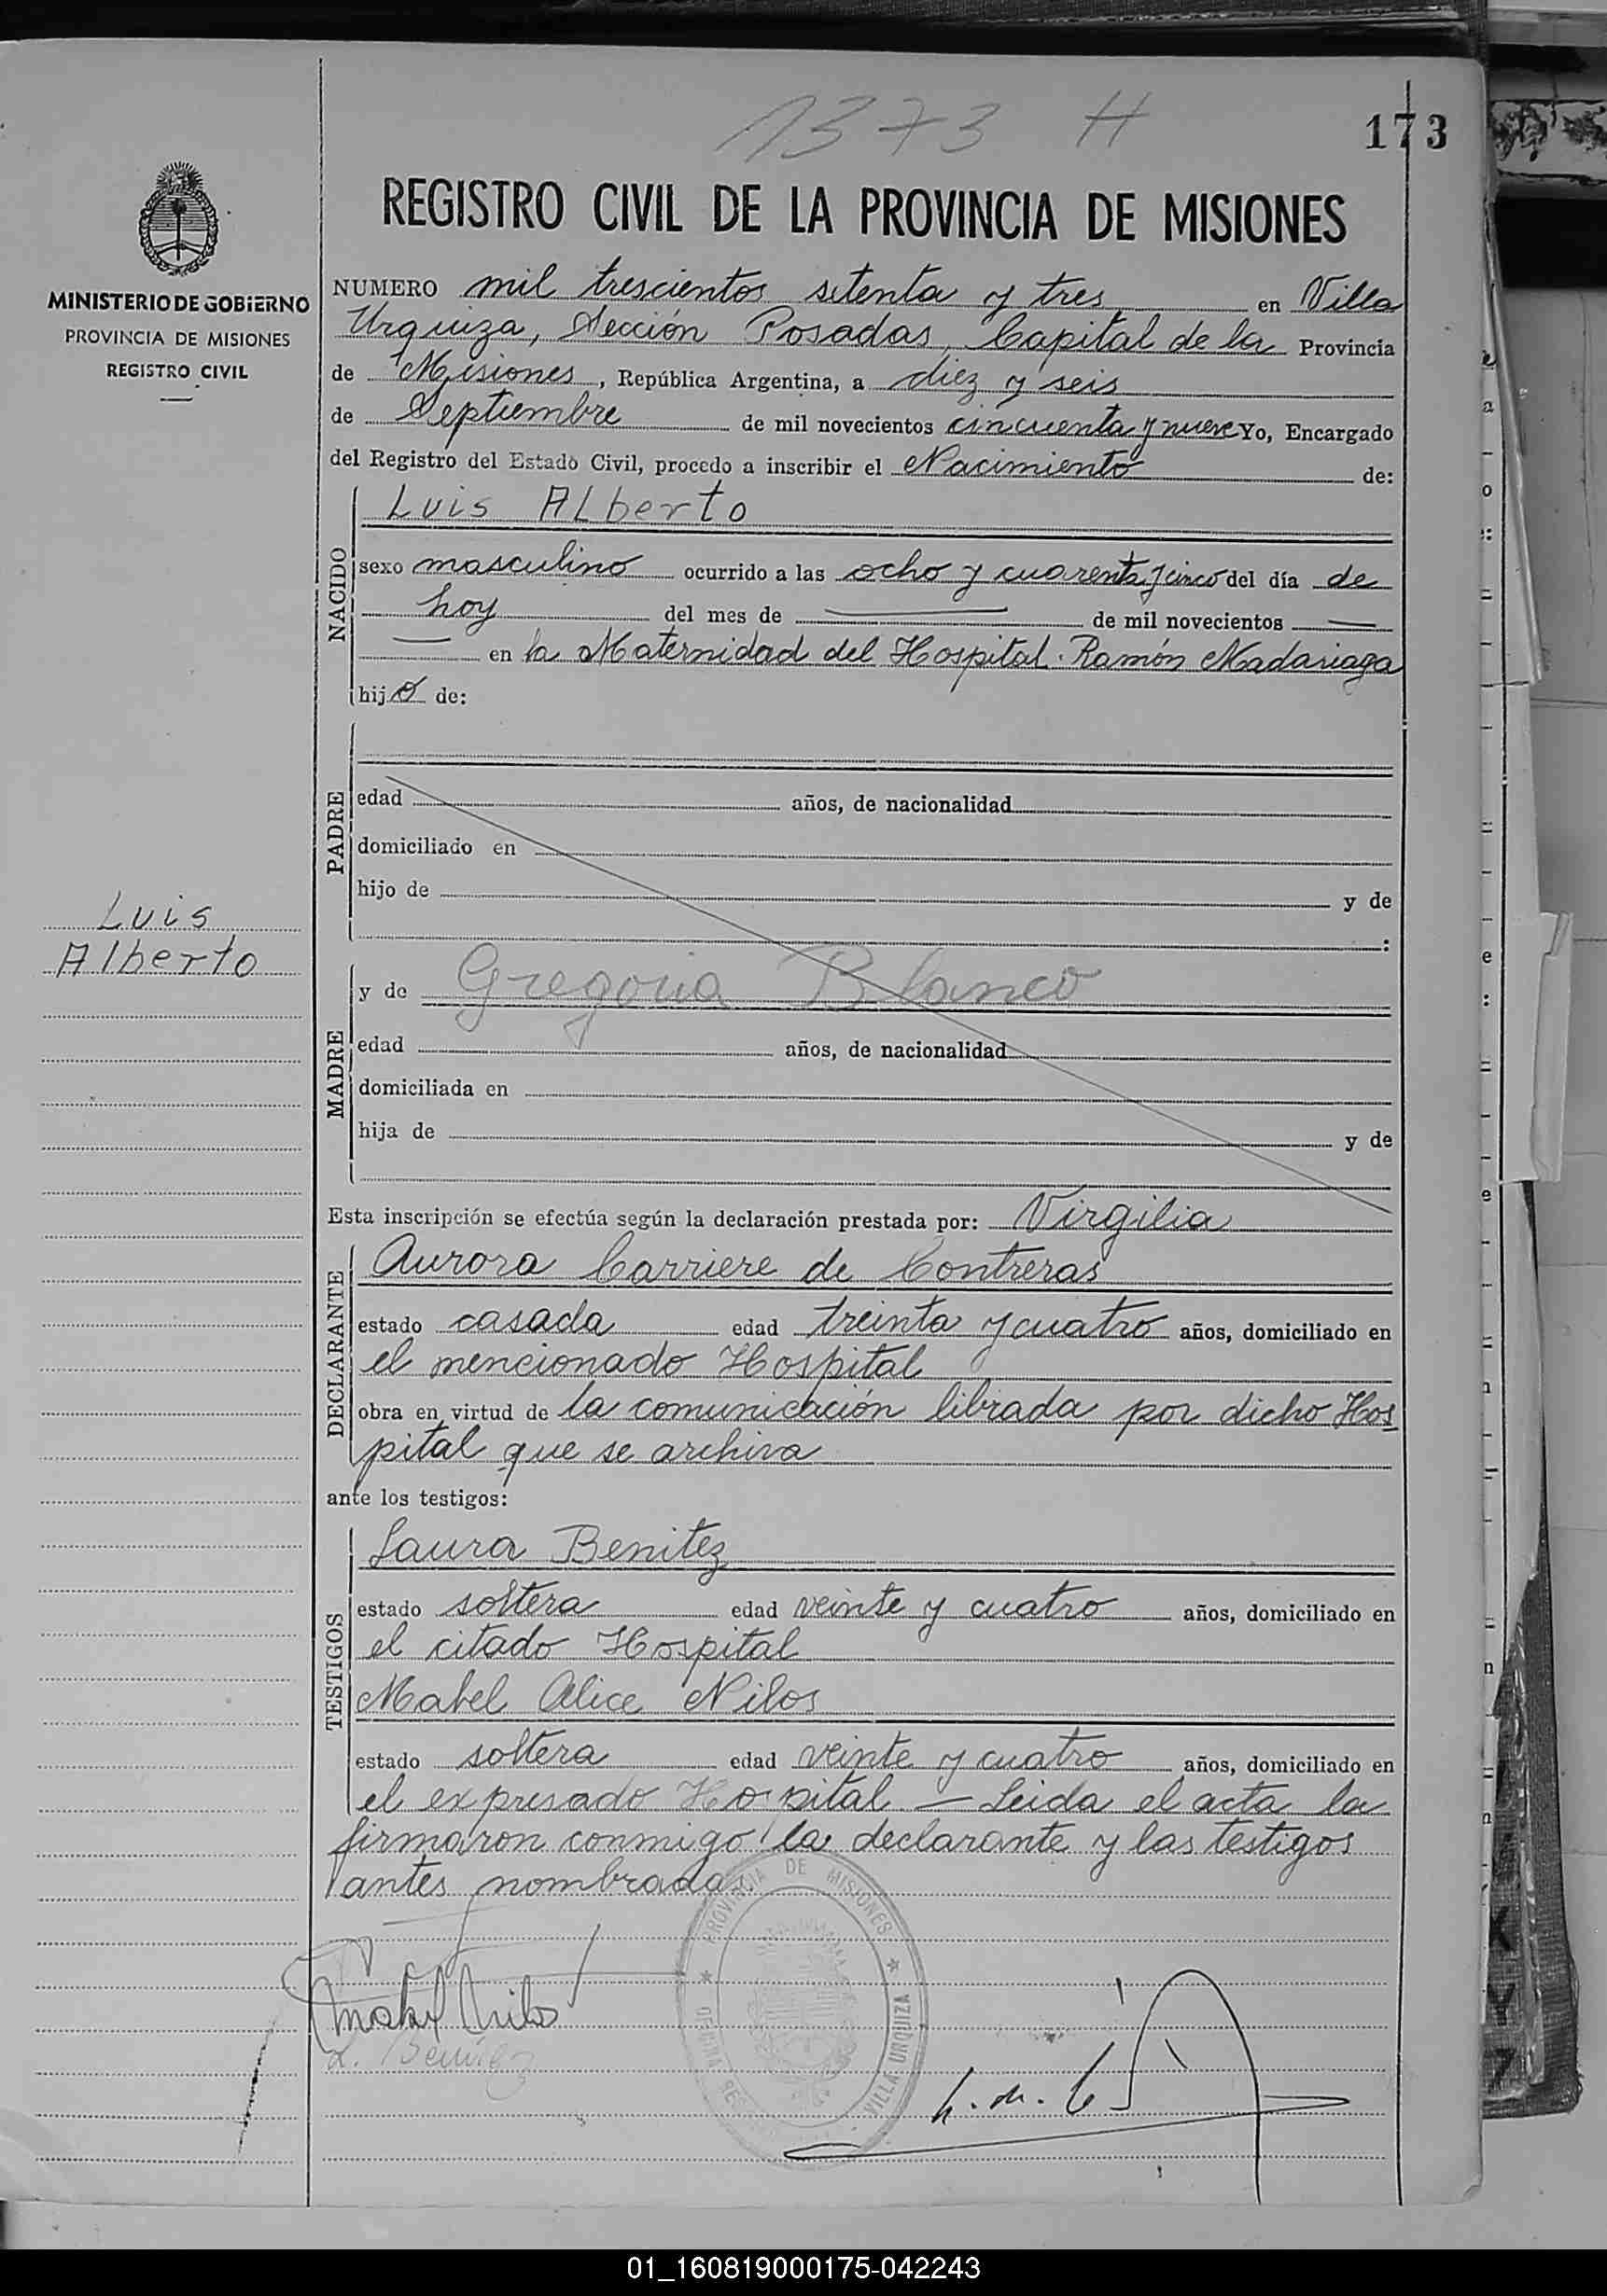 1373 H
173
REGISTRO CIVIL DE LA PROVINCIA DE MISIONES
MINISTERIO DE GOBIERNO
PROVINCIA DE MISIONES
REGISTRO CIVIL
NUMERO mil trescientos setenta y tres en Villa
Urquiza, Sección Posadas, Capital de la Provincia
de Misiones, República Argentina, a diez y seis
de Septiembre de mil novecientos cincuenta y nueve Yo, Encargado
del Registro del Estado Civil, procedo a inscribir el Nacimiento de:
Luis Alberto
NACIDO
sexo masculino ocurrido a las ocho y cuarenta y cinco del día de
hoy del mes de — de mil novecientos —
— en la Maternidad del Hospital Ramón Madariaga
hijo de:
PADRE
edad años, de nacionalidad
domiciliado en
hijo de y de
:
Luis
Alberto
MADRE
y de Gregoria Blanco
edad años, de nacionalidad
domiciliada en
hija de y de
Esta inscripción se efectúa según la declaración prestada por: Virgilia
DECLARANTE
Aurora Carriere de Contreras
estado casada edad treinta y cuatro años, domiciliado en
el mencionado Hospital
obra en virtud de la comunicación librada por dicho Hos
pital que se archiva
ante los testigos:
TESTIGOS
Laura Benitez
estado soltera edad veinte y cuatro años, domiciliado en
el citado Hospital
Mabel Alice Nilos
estado soltera edad veinte y cuatro años, domiciliado en
el expresado Hospital — Leida el acta la
firmaron conmigo la declarante y las testigos
antes nombradas
PROVINCIA DE MISIONES
OFICINA
VILLA URQUIZA
Mabel Nilos
L. Benitez
01_160819000175-042243